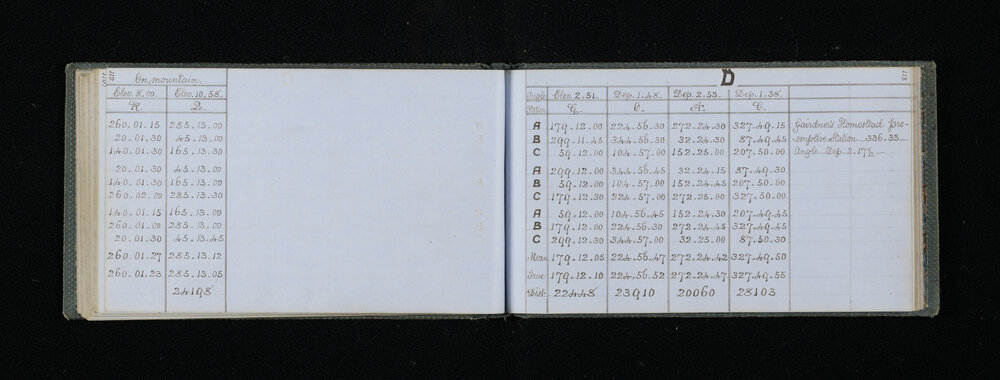 112
On mountain.
Elev. 8.00. Elev. 10.58.
R. Q.
260.01.15 285.13.00
20.01.30 45.13.00
140.01.30 165.13.30
20.01.30 45.13.00
140.01.30 165.13.00
260.02.00 285.13.30
140.01.15 165.13.00
260.01.00 285.13.00
20.01.30 45.13.45
260.01.27 285.13.12
260.01.23 285.13.05
24198
113
D
Angle Elev. 2.51. Dep. 1.48. Dep. 2.53. Dep. 1.38.
Station G. C.
A 179.12.00 224.56.30 272.24.30 327.49.15 Gairdner's Homestead pre-
B 299.11.45 344.56.30 32.24.30 87.49.45 -emptive station 336.33
C 59.12.00 104.57.00 152.25.00 207.50.00 Angle Dep 2.17½
A 299.12.00 344.56.45 32.24.15 87.49.30
B 59.12.00 104.57.00 152.24.45 207.50.00
C 179.12.30 224.57.00 272.25.00 327.50.00
A 59.12.00 104.56.45 152.24.30 207.49.45
B 179.12.00 224.56.30 272.24.45 327.49.45
C 299.12.30 344.57.00 32.25.00 87.50.30
Mean 179.12.05 224.56.47 272.24.42 327.49.50
True 179.12.10 224.56.52 272.24.47 327.49.55
Dist. 22448 23910 20060 28103